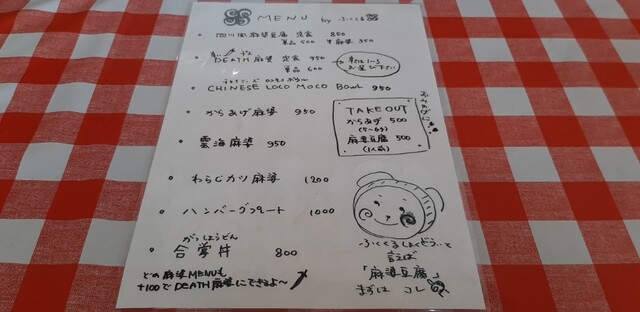 MENU by ふくくる
• 四川風麻婆豆腐 定食 850
単品 500 半麻婆 350
• DEATH麻婆 定食 950
単品 600
辛さは1~3
お選び下さい
チャイニーズ ロコモコボウル
• CHINESE LOCO MOCO BOWL 950
• からあげ麻婆 950
• 雲海麻婆 950
• わらじカツ麻婆 1200
• ハンバーグプレート 1000
がっしょうどん
• 合掌丼 800
どの麻婆MENUも
+100でDEATH麻婆にできるよ~
おみやげに
TAKE OUT
からあげ 500
(5~6ヶ)
麻婆豆腐 500
(1人前)
ふくくるしょくどうと
言えば
「麻婆豆腐」
まずは コレ